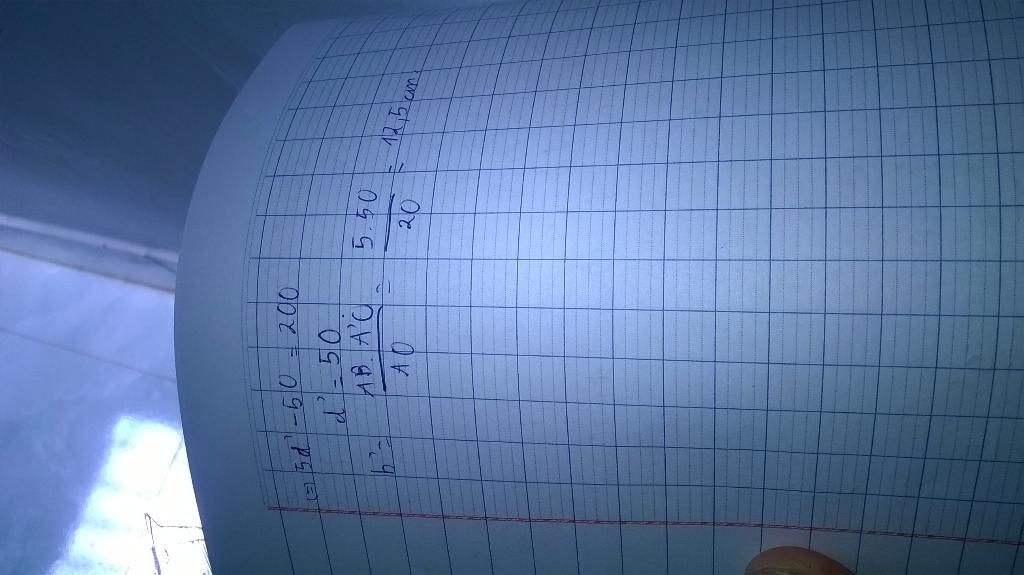 (=) 5d' - 50 = 200
d' = 50
h' = AB. A'O / AO = 5.50 / 20 = 12,5 cm.